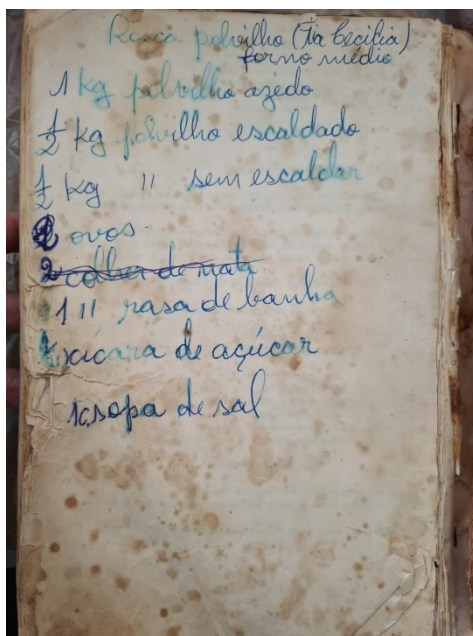 Rosca polvilho (Tia Cecilia)
forno médio
1 kg polvilho azedo
1/2 kg polvilho escaldado
1/2 kg " sem escaldar
ovos
2 colher de nata
1 " rasa de banha
xícara de açúcar
1 c. sopa de sal